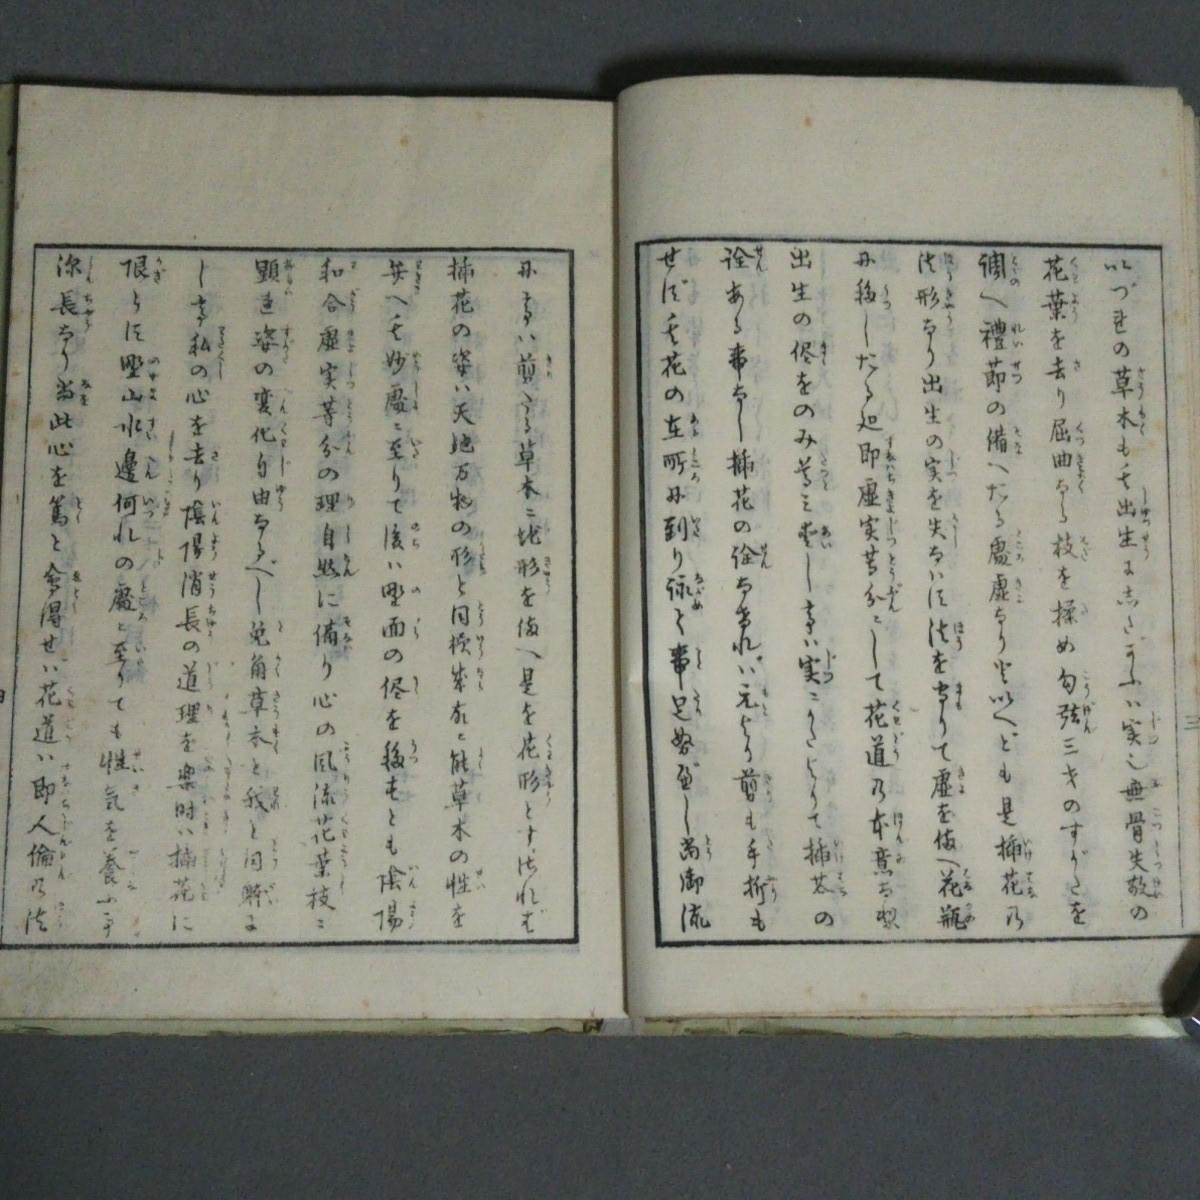 いづれの草木も其出生にしたがふハ実也無骨失敬の
花葉を去り屈曲なる枝を揉め勾弦三才のすがたを
調へ禮節の備へたる處虚なり然いへども是挿花乃
法形なり出生の実を失なハず法を守りて虚を備へ花瓶
に移したる処即虚実等分にして花道乃本意な
出生の侭をのみ尊み愛し事ハ実にかたよりて挿花の
詮ある事なし挿花の詮なきれバ元より剪も手折も
せず其花の在所に到り詠て事足ぬべし尚御流
に于ハ剪たる草木に地形を備へ是を花形とす然れば
挿花の姿ハ天地万物の形と同様なれバ能草木の性を
弁へ其妙處に至りて後ハ野面の侭を移すとも陰陽
和合虚実等分の理自然に備り心の風流花葉枝に
顕连姿の変化自由なるべし兎角草木と我と同躰に
し于私の心を去り陰陽消長の道理を楽時ハ挿花に
限らず野山水邊何れの處に至りても性氣を養ふ事
深長なり尚此心を篤と會得せハ花道ハ即人倫乃法